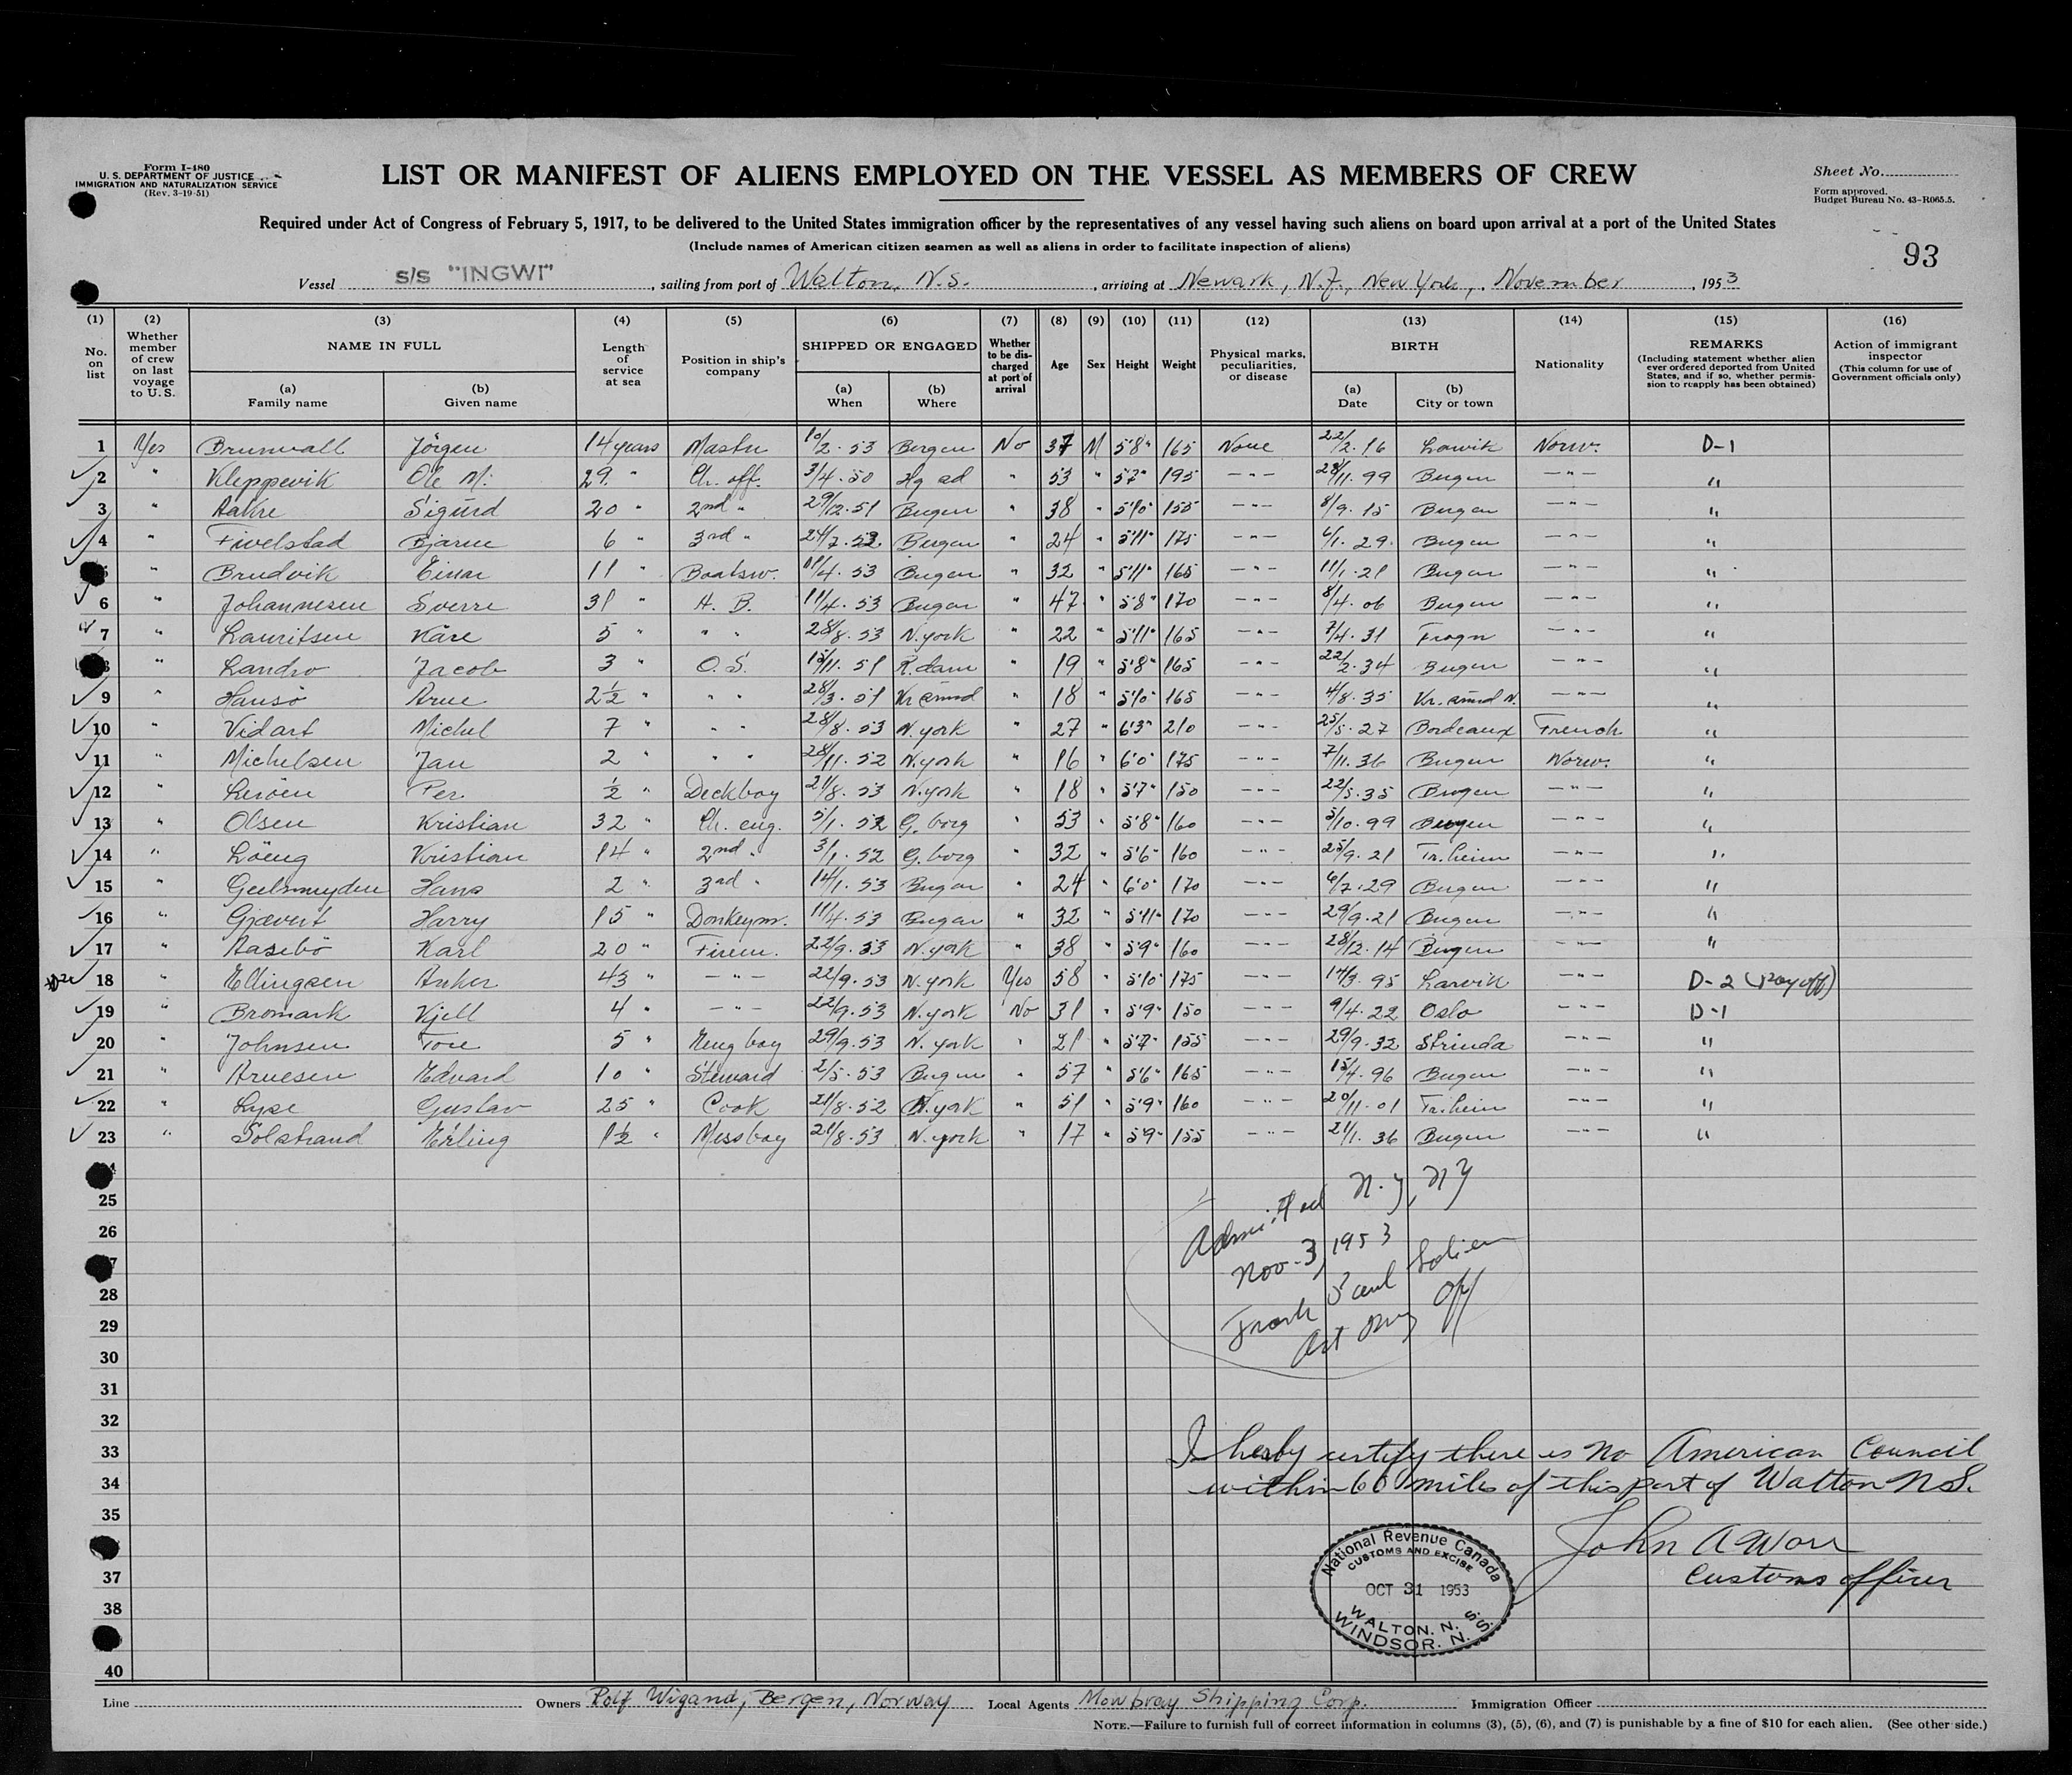 Form I-480
U. S. DEPARTMENT OF JUSTICE
IMMIGRATION AND NATURALIZATION SERVICE
(Rev. 3-19-51)
LIST OR MANIFEST OF ALIENS EMPLOYED ON THE VESSEL AS MEMBERS OF CREW
Sheet No.
Form approved.
Budget Bureau No. 43-R065.5.
Required under Act of Congress of February 5, 1917, to be delivered to the United States immigration officer by the representatives of any vessel having such aliens on board upon arrival at a port of the United States
(Include names of American citizen seamen as well as aliens in order to facilitate inspection of aliens)
93
Vessel S/S "INGWI", sailing from port of Walton, N.S., arriving at Newark, N.J., New York, November, 1953
(1) No. on list
(2) Whether member of crew on last voyage to U. S.
(3) NAME IN FULL (a) Family name (b) Given name
(4) Length of service at sea
(5) Position in ship's company
(6) SHIPPED OR ENGAGED (a) When (b) Where
(7) Whether to be discharged at port of arrival
(8) Age
(9) Sex
(10) Height
(11) Weight
(12) Physical marks, peculiarities, or disease
(13) BIRTH (a) Date (b) City or town
(14) Nationality
(15) REMARKS (Including statement whether alien ever ordered deported from United States, and if so, whether permission to reapply has been obtained)
(16) Action of immigrant inspector (This column for use of Government officials only)
1 Yes Brunvall Jörgen 14 years Master 10/2.53 Bergen No 37 M 5'8" 165 None 22/2.16 Larvik Norw. D-1
2 " Kleppevik Ole M. 29 " Ch. off. 3/4.50 " 53 " 5'7" 195 -"- 28/11.99 Bergen -"- "
3 " Aahre Sigurd 20 " 2nd " 29/12.51 Bergen " 38 " 5'10" 155 -"- 8/9.15 Bergen -"- "
4 " Fivelstad Bjarne 6 " 3rd " 24/7.52 Bergen " 24 " 5'11" 175 -"- 6/1.29 Bergen -"- "
" Brudvik Einar 11 " Boatsw. 11/4.53 Bergen " 32 " 5'11" 165 -"- 11/1.21 Bergen -"- "
6 " Johannesen Sverre 31 " A. B. 11/4.53 Bergen " 47 " 5'8" 170 -"- 8/4.06 Bergen -"- "
7 " Lauritsen Kåre 5 " " " 28/8.53 N.york " 22 " 5'11" 165 -"- 7/4.31 Frogn -"- "
" Landro Jacob 3 " O.S. 15/11.51 R.dam " 19 " 5'8" 165 -"- 22/2.34 Bergen -"- "
9 " Hansö Arne 2½ " " " 28/3.51 Kr.sund " 18 " 5'10" 165 -"- 4/8.35 Kr.sund N. -"- "
10 " Vidart Michel 7 " " " 28/8.53 N.york " 27 " 6'3" 210 -"- 25/5.27 Bordeaux French "
11 " Michelsen Jan 2 " " " 28/11.52 N.york " 16 " 6'0" 175 -"- 7/11.36 Bergen Norw. "
12 " Leröen Per ½ " Deckboy 21/8.53 N.york " 18 " 5'7" 150 -"- 22/5.35 Bergen -"- "
13 " Olsen Kristian 32 " Ch. eng. 5/1.52 G.borg " 53 " 5'8" 160 -"- 5/10.99 Bergen -"- "
14 " Löeng Kristian 14 " 2nd " 3/1.52 G.borg " 32 " 5'6" 160 -"- 25/9.21 Tr.heim -"- "
15 " Geelmuyden Hans 2 " 3rd " 14/1.53 Bergen " 24 " 6'0" 170 -"- 6/7.29 Bergen -"- "
16 " Gjævert Harry 15 " Donkeym. 11/4.53 Bergen " 32 " 5'11" 170 -"- 29/9.21 Bergen -"- "
17 " Aasebö Karl 20 " Firem. 22/9.53 N.york " 38 " 5'9" 160 -"- 28/12.14 Bergen -"- "
18 " Ellingsen Anker 43 " -"- 22/9.53 N.york Yes 58 " 5'10" 175 -"- 14/3.95 Larvik -"- D-2 (Pay off)
19 " Bromark Kjell 4 " -"- 22/9.53 N.york No 31 " 5'9" 150 -"- 9/4.22 Oslo -"- D-1
20 " Johnsen Tore 5 " 29/9.53 N.york " 21 " 5'7" 155 -"- 29/9.32 Strinda -"- "
21 " Arnesen Edvard 10 " Steward 2/5.53 Bergen " 57 " 5'6" 165 -"- 15/4.96 Bergen -"- "
22 " Lyse Gustav 25 " Cook 21/8.52 N.york " 51 " 5'9" 160 -"- 20/11.01 Tr.heim -"- "
23 " Solstrand Erling 1½ " Messboy 21/8.53 N.york " 17 " 5'9" 155 -"- 21/1.36 Bergen -"- "
25
26
28
29
30
31
32
33
34
35
37
38
40
Admitted N.Y, NY
Nov-3, 1953
Frank Paul
Off
I herby certify there is no American Council
within 60 miles of this port of Walton N.S.
John A
Customs officer
National Revenue Canada
CUSTOMS AND EXCISE
OCT 31 1953
WALTON. N. S.
WINDSOR. N. S.
Line Owners Rolf Wigand, Bergen, Norway Local Agents Mowbray Shipping Corp. Immigration Officer
NOTE.—Failure to furnish full or correct information in columns (3), (5), (6), and (7) is punishable by a fine of $10 for each alien. (See other side.)